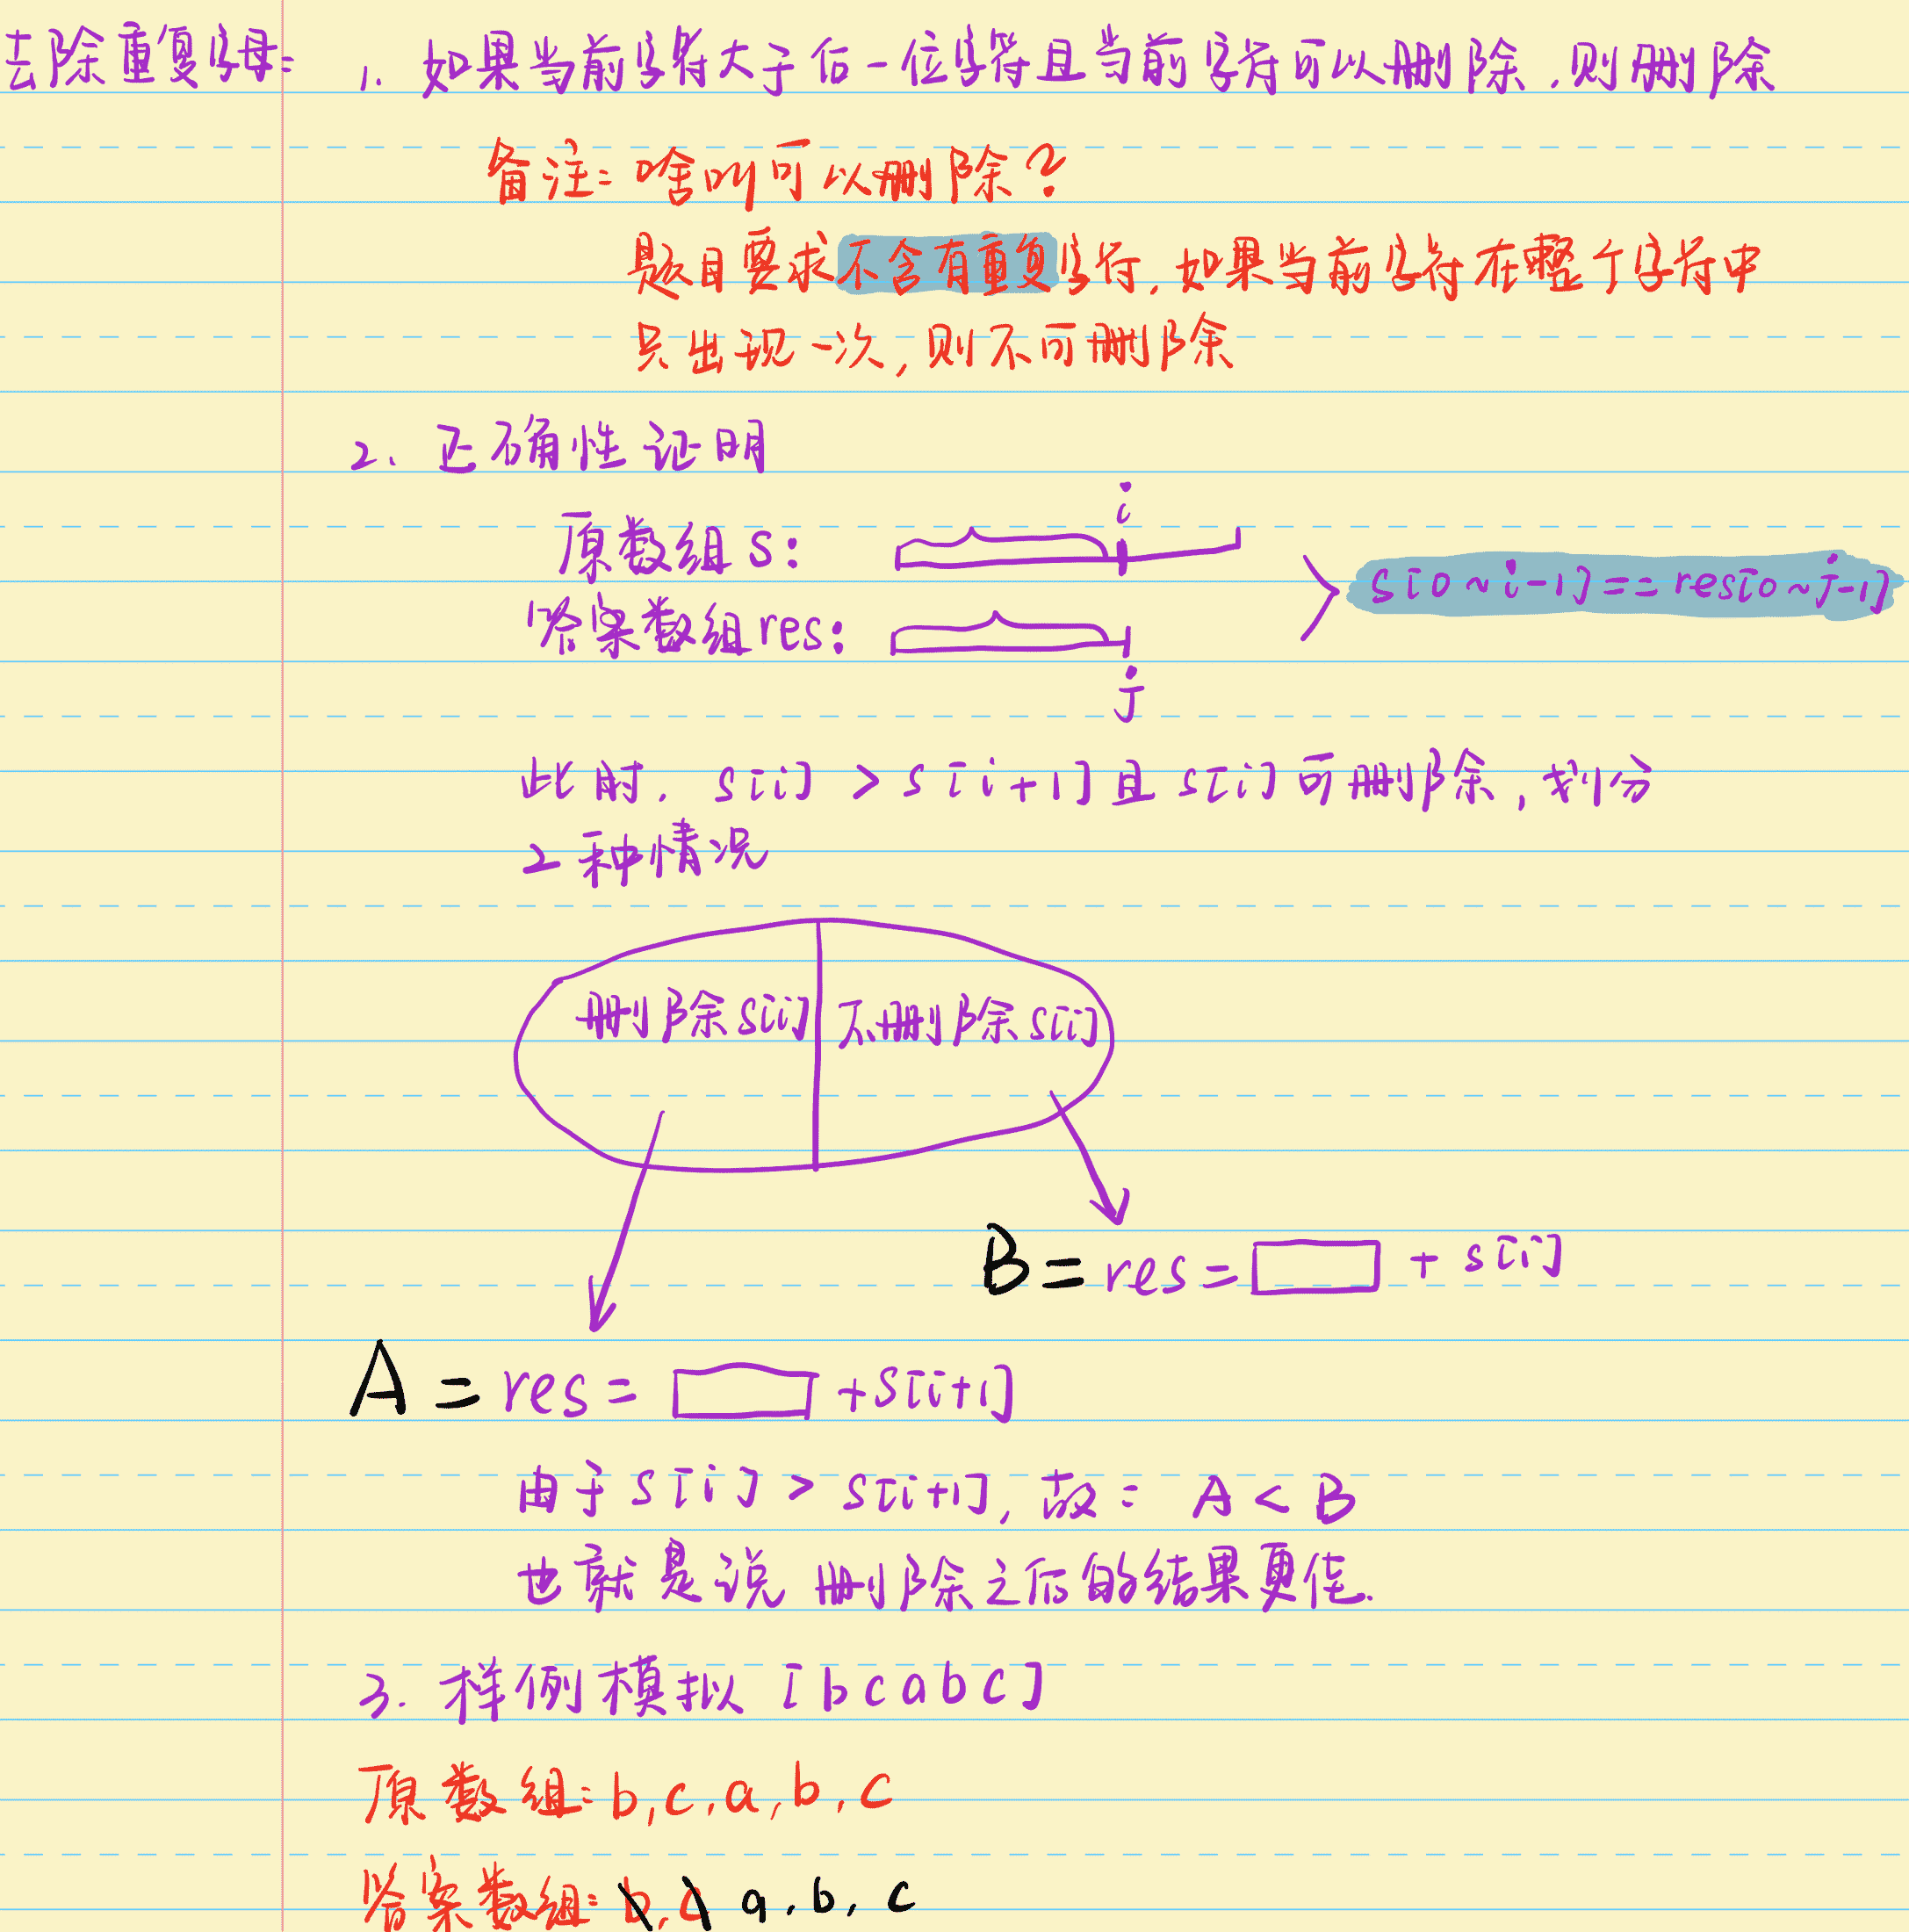 去除重复字母: 1. 如果当前字符大于后一位字符且当前字符可以删除,则删除
备注:啥叫可以删除?
题目要求不含有重复字符,如果当前字符在整个字符中
只出现一次,则不可删除
2. 正确性证明
i
原数组s:
答案数组res:
s[0~i-1]==res[0~j-1]
j
此时. s[i] > s[i+1]且s[i]可删除,划分
2种情况
删除s[i] 不删除s[i]
B = res = + s[i]
A = res = +s[i+1]
由于s[i] > s[i+1],故: A < B
也就是说 删除之后的结果更佳.
3. 样例模拟 [bcabc]
原数组:b,c,a,b,c
答案数组:b,c a,b,c